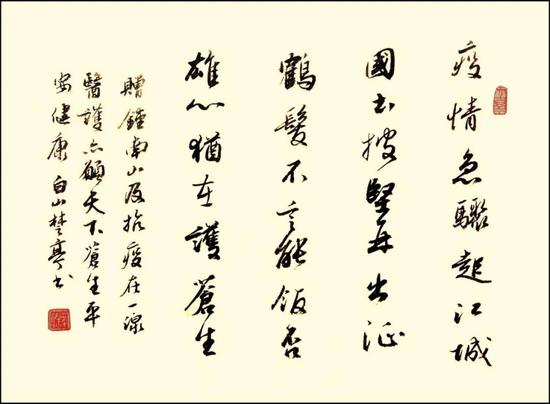 疫情急驟起江城
國士披堅再出征
鶴髮不言能飯否
雄心猶在護蒼生
贈鐘南山及抗疫在一線
醫護亦願天下蒼生平
安健康 白山楚亭书